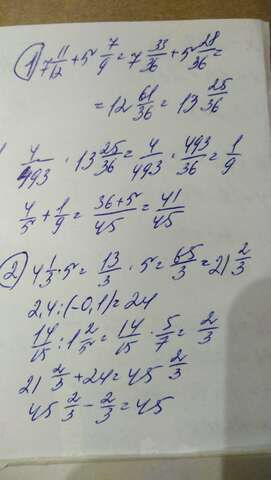 1) 7 11/12 + 5 7/9 = 7 33/36 + 5 28/36 =
= 12 61/36 = 13 25/36
4/493 · 13 25/36 = 4/493 · 493/36 = 1/9
4/5 + 1/9 = 36+5/45 = 41/45
2) 4 1/3 · 5 = 13/3 · 5 = 65/3 = 21 2/3
2,4 : (-0,1) = 24
14/15 : 1 2/5 = 14/15 · 5/7 = 2/3
21 2/3 + 24 = 45 2/3
45 2/3 - 2/3 = 45